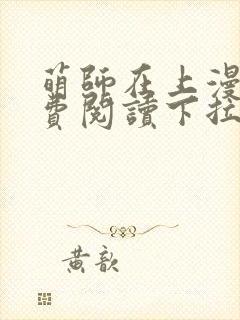 萌師在上漫
費閱讀下拉
黃歆